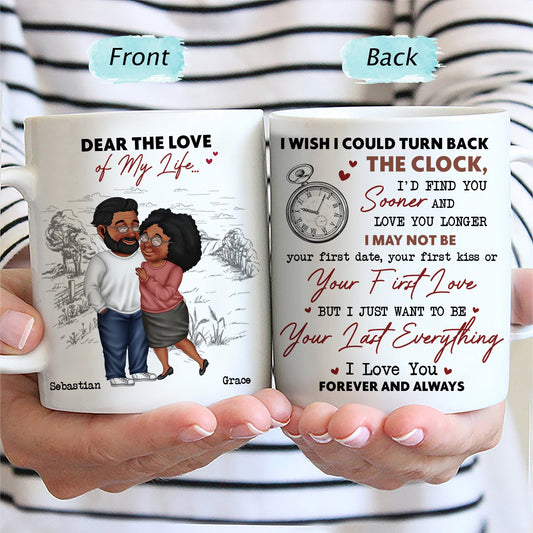 Front
DEAR THE LOVE
of My Life...
Sebastian
Grace
Back
I WISH I COULD TURN BACK
THE CLOCK,
I'D FIND YOU
Sooner AND
LOVE YOU LONGER
I MAY NOT BE
your first date, your first kiss or
Your First Love
BUT I JUST WANT TO BE
Your Last Everything
I Love You
FOREVER AND ALWAYS